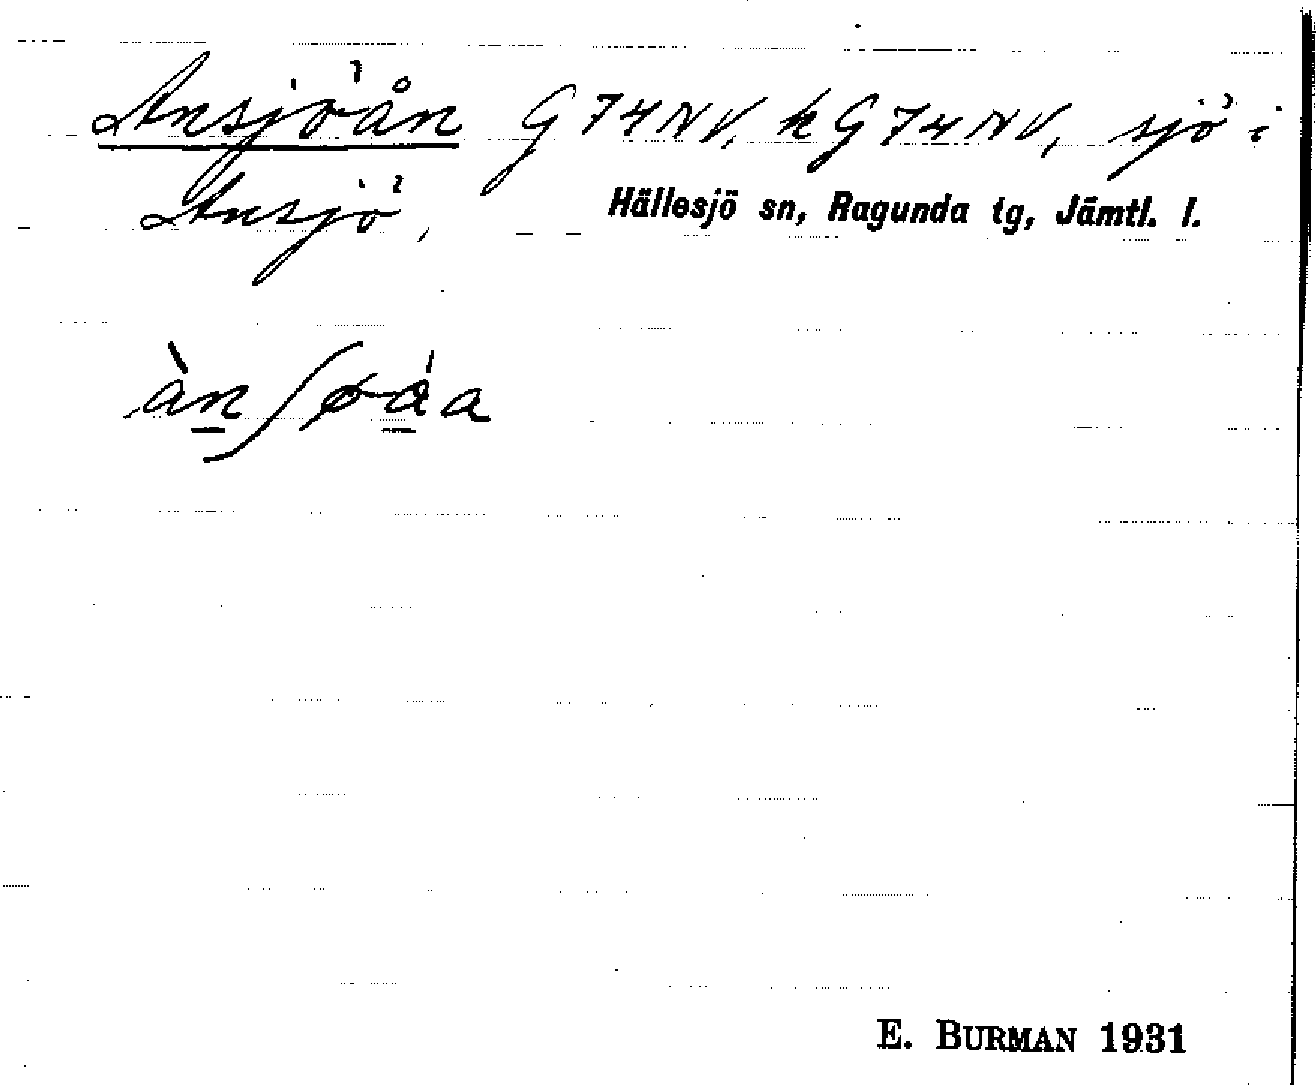 Ansjöån G74NV, k G74NV, sjö i
Ansjö, Hällesjö sn, Ragunda tg, Jämtl. l.
àn̲ʃøǻ̲a
E. BURMAN 1931